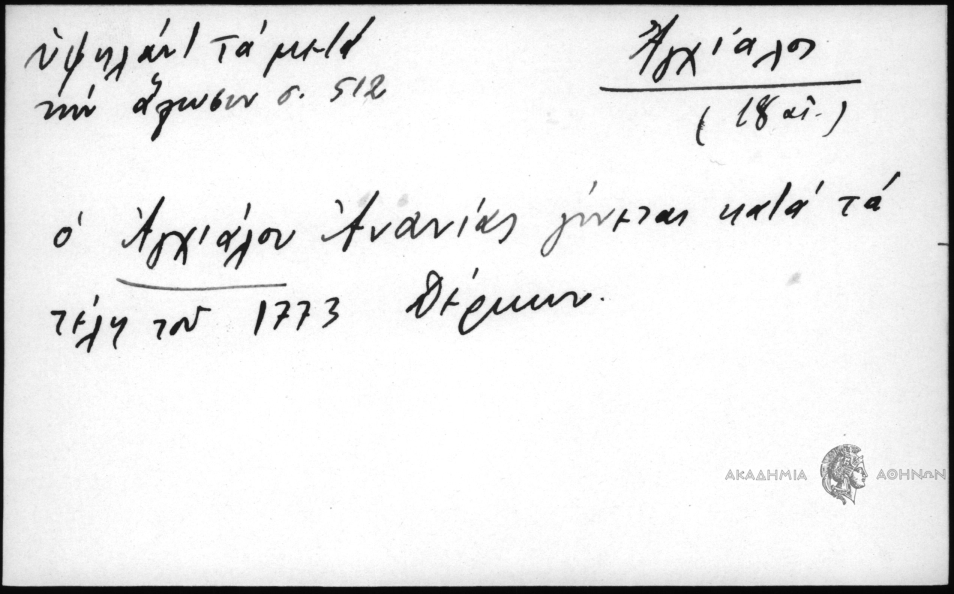 Ὑψηλάντ τά μετά
τήν ἅλωσιν σ. 512
Ἀγχίαλος
(18 αἰ.)
ὁ Ἀγχιάλου Ἀνανίας γίνεται κατά τά
τέλη τοῦ 1773 Δέρκων.
ΑΚΑΔΗΜΙΑ ΑΘΗΝΩΝ